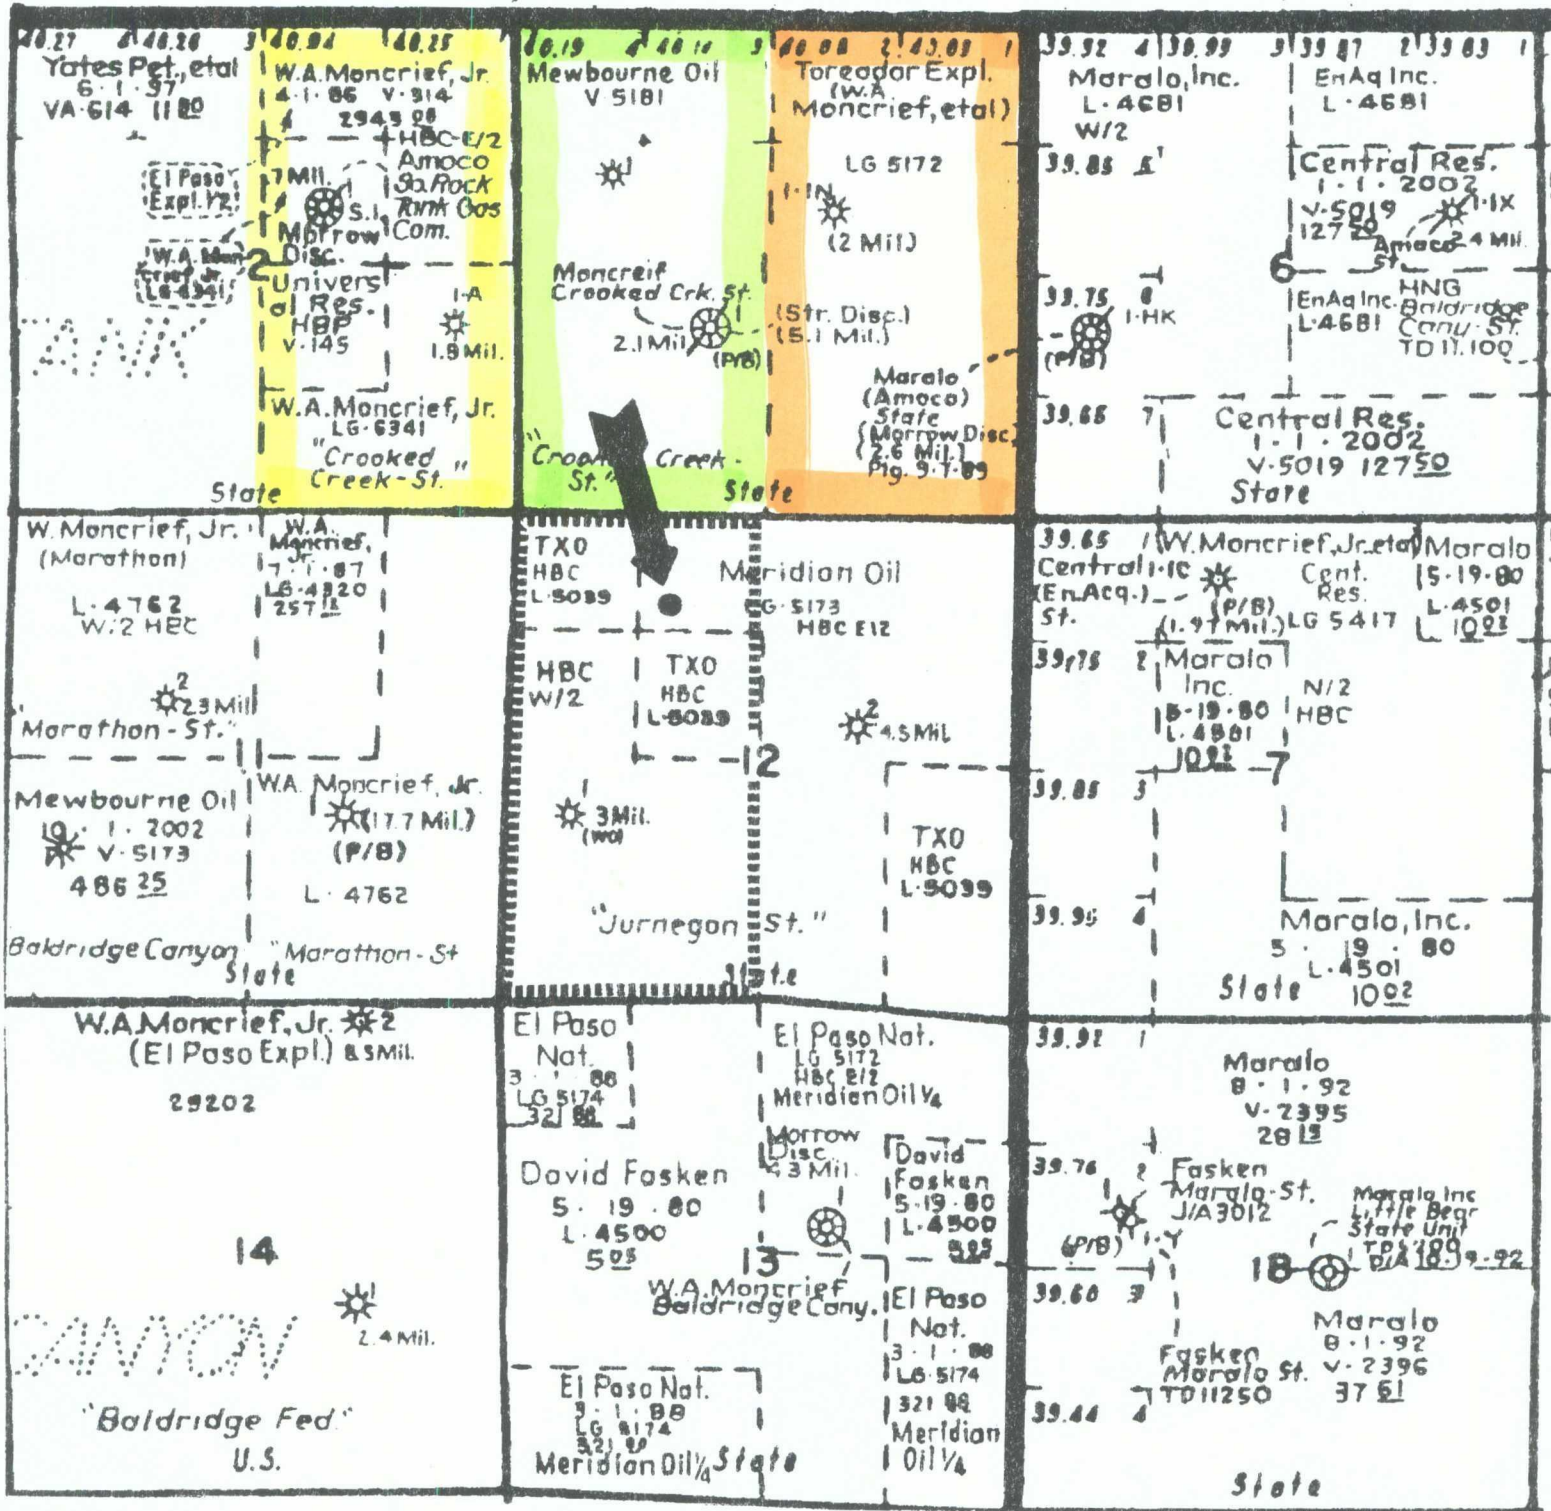 40.27 4 40.26 3 40.94 40.25
Yates Pet., etal
6·1·97
VA-614 1180
El Paso
Expl. 1/2
W.A. Moncrief, Jr.
4·1·86 V·314
2949 08
HBC-E/2
Amoco
So. Rock
Tank Gas
Com.
7 Mil.
1
S.I.
Morrow
Disc.
2
Univers
al Res.
HBP
V·145
1-A
1.9 Mil.
W.A. Moncrief, Jr.
LG-6341
"Crooked
Creek-St."
State
ANK
40.19 4 40.14 3
Mewbourne Oil
V·5181
1
Moncreif
Crooked Crk. St.
1
2.1 Mil
(P/B)
Creek-
St."
State
2 43.09 1
Toreador Expl.
(W.A.
Moncrief, etal)
LG 5172
1-1N
(2 Mil)
(Str. Disc.)
(5.1 Mil.)
Maralo
(Amoco)
State
(Morrow Disc
(2.6 Mil.)
Plg. 9-7-89
39.92 4 39.99 3 39.87 2 39.83 1
Maralo, Inc.
L·4681
W/2
EnAq Inc.
L·4681
39.85 5
Central Res.
1·1·2002
V·5019
12750
1-1X
2.4 Mil.
Amoco
St.
6
39.75 6
1-HK
(P/B)
EnAq Inc.
L·4681
HNG
Baldridge
Cany-St.
TD 11,100
39.65 7
Central Res.
1·1·2002
V·5019 12750
State
W. Moncrief, Jr.
(Marathon)
L·4762
W/2 HBC
2
2.3 Mil
"Marathon-St."
W.A.
Moncrief,
Jr.
7·1·87
LG-4320
257
Mewbourne Oil
10·1·2002
V·5173
486 25
Baldridge Canyon
State
W.A. Moncrief, Jr.
1
(17.7 Mil.)
(P/B)
L·4762
"Marathon-St
TXO
HBC
L·5039
HBC
W/2
TXO
HBC
L·5039
Meridian Oil
LG·5173
HBC E12
2
4.5 Mil
12
1
3 Mil.
(WO)
TXO
HBC
L·5039
"Jurnegan St."
State
39.65 1
Central 1-1C
(En.Acq.)
St.
W. Moncrief, Jr. etal
Cent.
Res.
(P/B)
(1.9 Mil.) LG 5417
Maralo
5-19-80
L·4501
1002
39.75 2
Maralo
Inc.
5-19-80
L·4501
1002
N/2
HBC
7
39.85 3
39.95 4
Maralo, Inc.
5·19·80
L·4501
1002
State
W.A. Moncrief, Jr. 2
(El Paso Expl.) 8.5 Mil.
29202
14
1
2.4 Mil.
CANYON
"Baldridge Fed."
U.S.
El Paso
Nat.
3·1·88
LG 5174
321 88
El Paso Nat.
LG 5172
HBC E/2
Meridian Oil 1/4
Morrow
Disc.
4.3 Mil.
1
David Fasken
5·19·80
L·4500
505
David
Fasken
5·19·80
L·4500
505
13
W.A. Moncrief
Baldridge Cany.
El Paso
Nat.
3·1·88
LG·5174
321 88
Meridian
Oil 1/4
El Paso Nat.
3·1·88
LG 5174
Meridian Oil 1/4 State
39.92 1
Maralo
8·1·92
V·2395
28 15
39.76 2
Fasken
Maralo-St.
J/A3012
(P/B)
1-Y
Maralo Inc
Little Bear
State Unit
D/A 10-19-92
18
39.60 3
Maralo
8·1·92
V·2396
37 61
Fasken
Maralo St.
TD11250
39.44 4
State